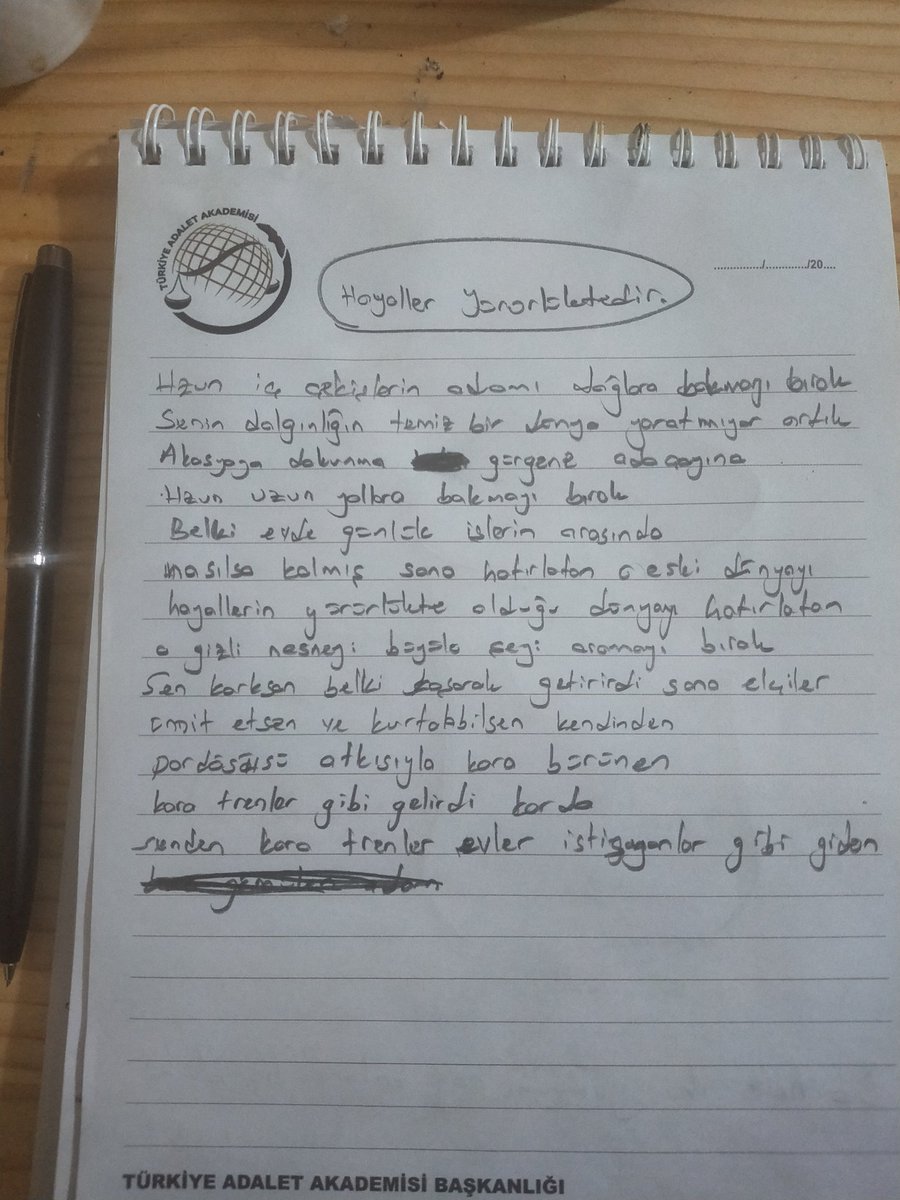 TÜRKİYE ADALET AKADEMİSİ
............../............./20....
Hayaller Yürürlüktedir.
Uzun iç çekişlerin adamı dağlara bakmayı bırak
Senin dalgınlığın temiz bir dünya yaratmıyor artık
Akasyaya dokunma gürgene adaçayına
Uzun uzun yollara bakmayı bırak
Belki evde günlük işlerin arasında
nasılsa kalmış sana hatırlatan o eski dünyayı
hayallerin yürürlükte olduğu dünyayı hatırlatan
o gizli nesneyi büyülü şeyi aramayı bırak
Sen korksan belki koşarak getirirdi sana elçiler
ümit etsen ve kurtulabilsen kendinden
pardösüsü atkısıyla kara bürünen
kara trenler gibi gelirdi karda
senden kara trenler evler istasyonlar gibi giden
TÜRKİYE ADALET AKADEMİSİ BAŞKANLIĞI